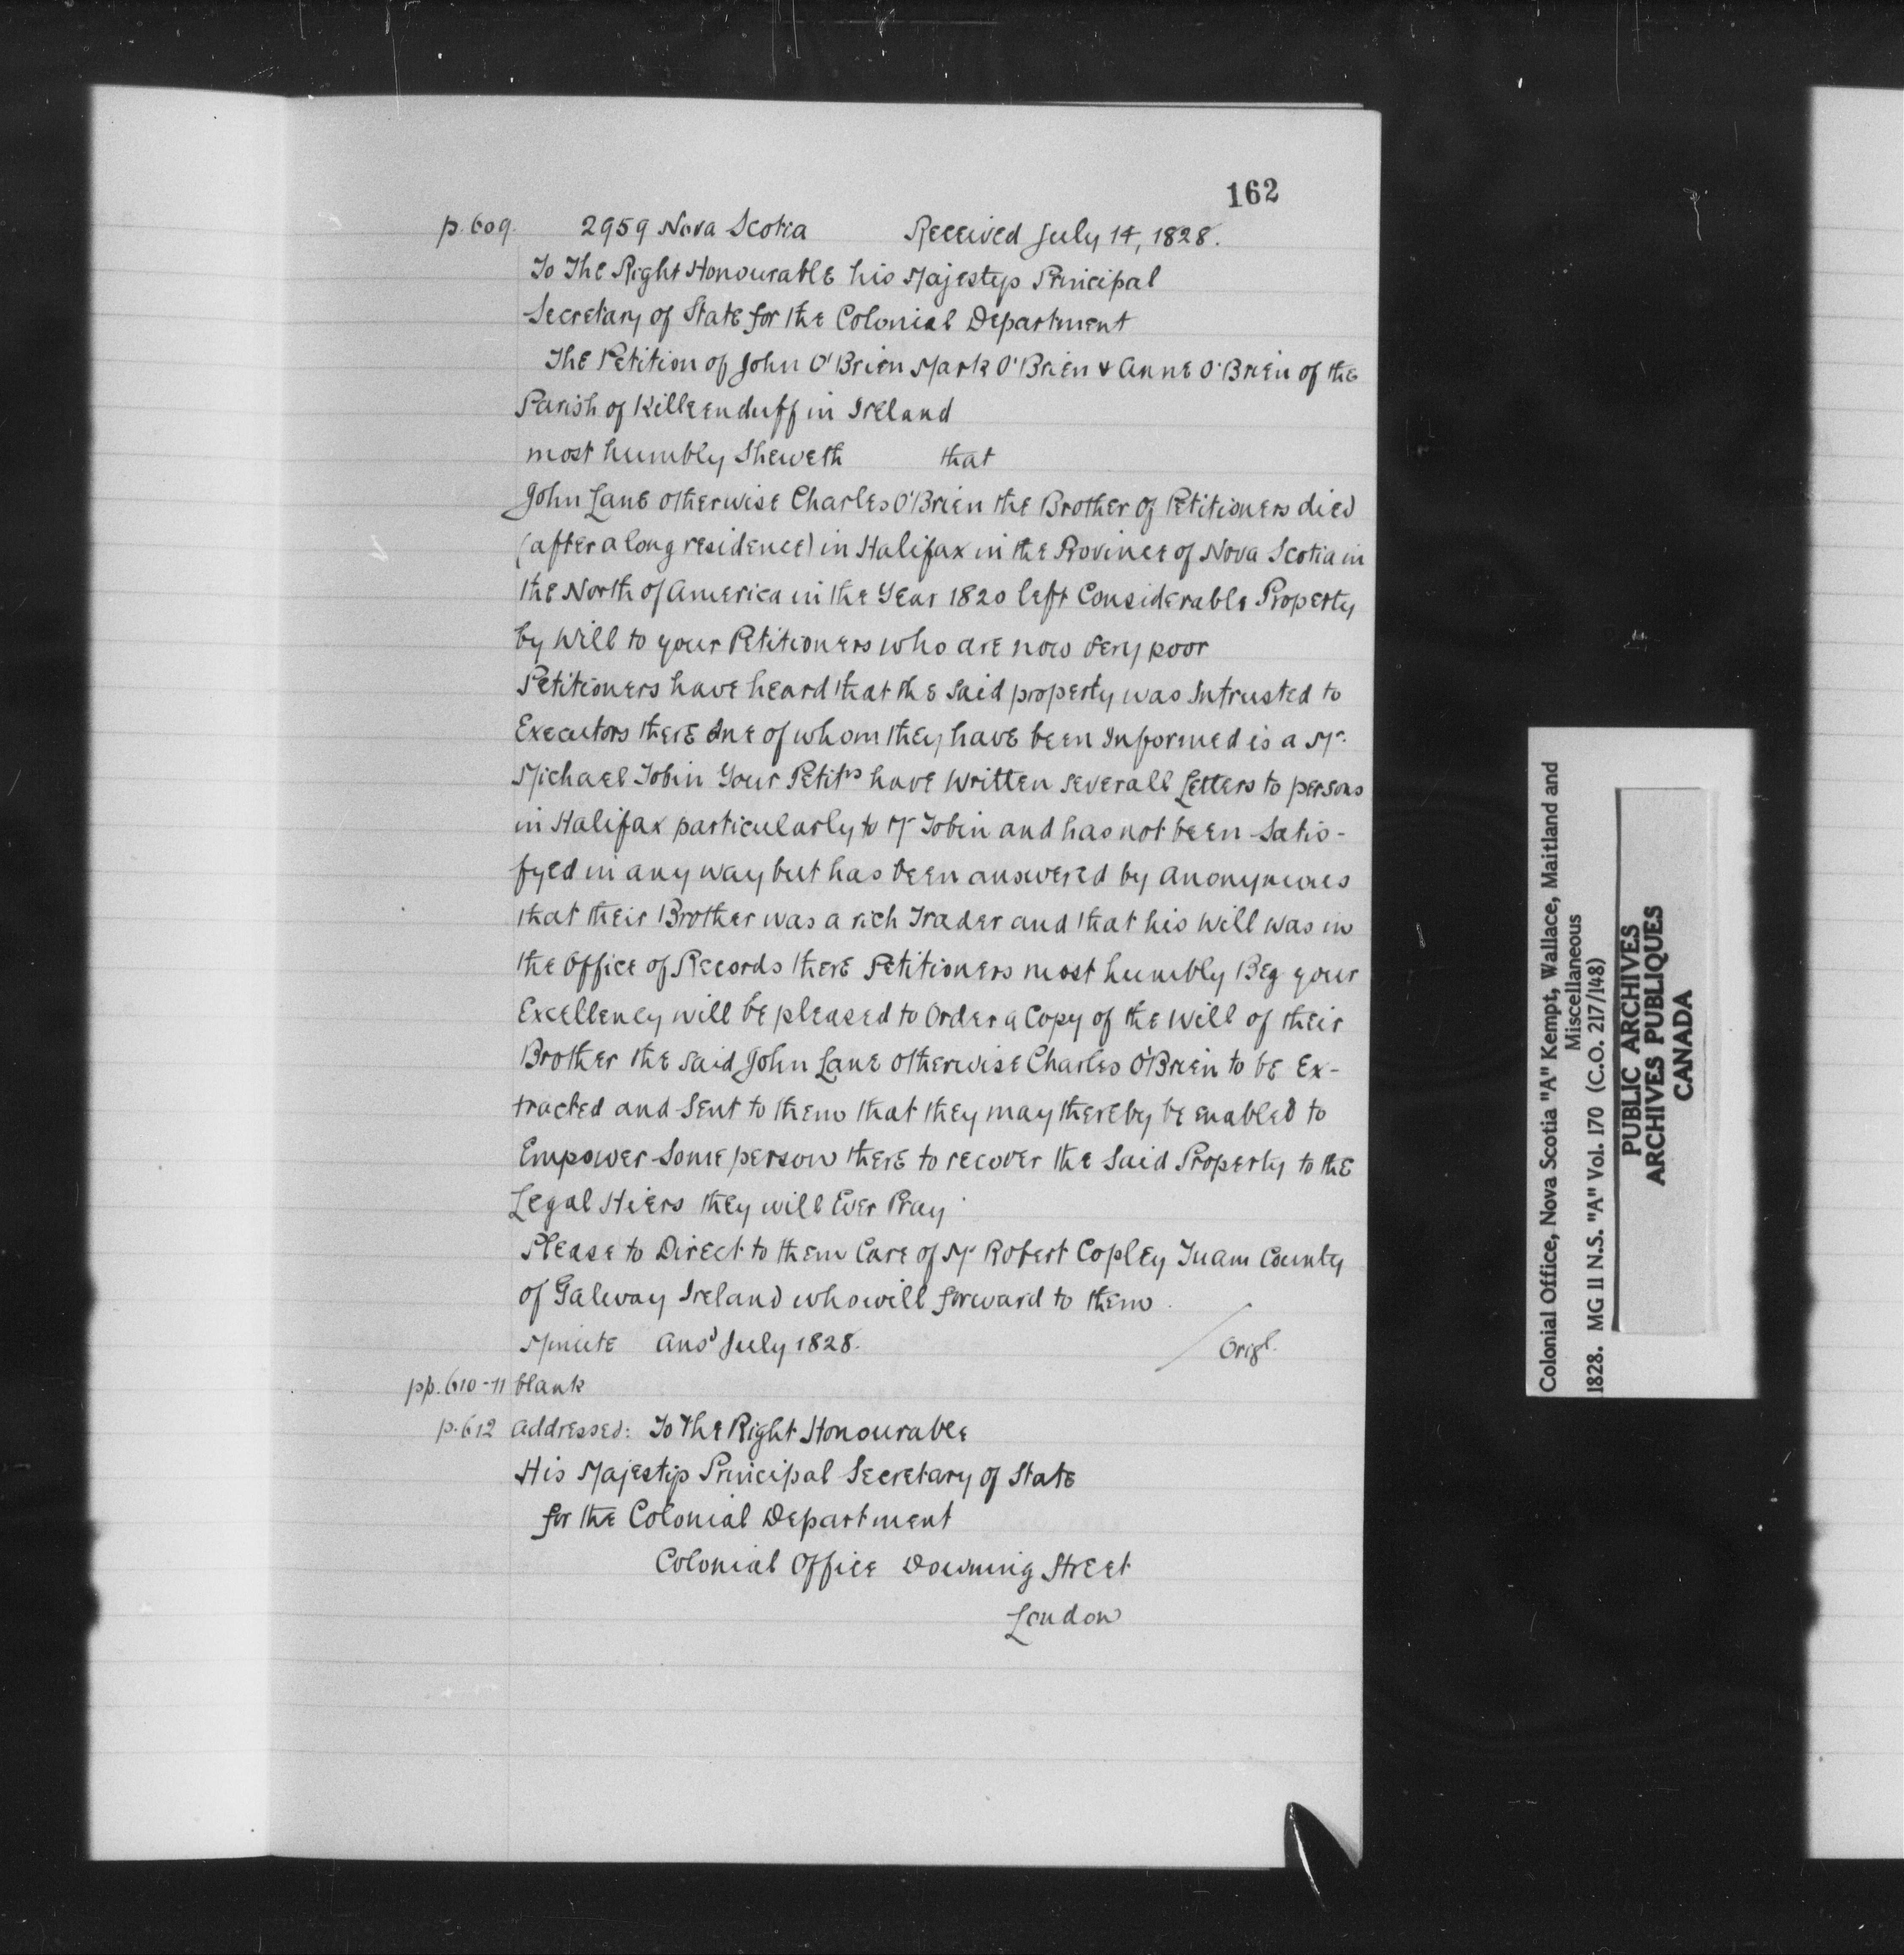 162
p. 609. 2959 Nova Scotia Received July 14, 1828.
To The Right Honourable his Majestys Principal
Secretary of State for the Colonial Department
The Petition of John O'Brien Mark O'Brien & Anne O'Brien of the
Parish of Killeenduff in Ireland
most humbly Sheweth that
John Lane otherwise Charles O'Brien the Brother of Petitioners died
(after a long residence) in Halifax in the Province of Nova Scotia in
the North of America in the Year 1820 left Considerable Property
by Will to your Petitioners who are now very poor
Petitioners have heard that the Said property was Intrusted to
Executors there One of whom they have been Informed is a Mr.
Michael Tobin Your Petitrs have Written Severall Letters to persons
in Halifax particularly to Mr Tobin and has not been Satis-
fyed in any way but has been answered by Anonymous
that their Brother was a rich Trader and that his Will was in
the Office of Records there Petitioners most humbly Beg your
Excellency will be pleased to Order a Copy of the Will of their
Brother the Said John Lane otherwise Charles O'Brien to be Ex-
tracted and Sent to them that they may thereby be enabled to
Empower Some person there to recover the Said Property to the
Legal Hiers they will Ever Pray
Please to Direct to them Care of Mr Robert Copley Tuam County
of Galway Ireland who will forward to them.
Minute Ansd July 1828. Origl.
pp. 610-11 blank
p. 612 Addressed: To The Right Honourable
His Majestys Principal Secretary of State
for the Colonial Department
Colonial Office Downing Street
London
Colonial Office, Nova Scotia "A" Kempt, Wallace, Maitland and
Miscellaneous
1828. MG 11 N.S. "A" Vol. 170 (C.O. 217/148)
PUBLIC ARCHIVES
ARCHIVES PUBLIQUES
CANADA